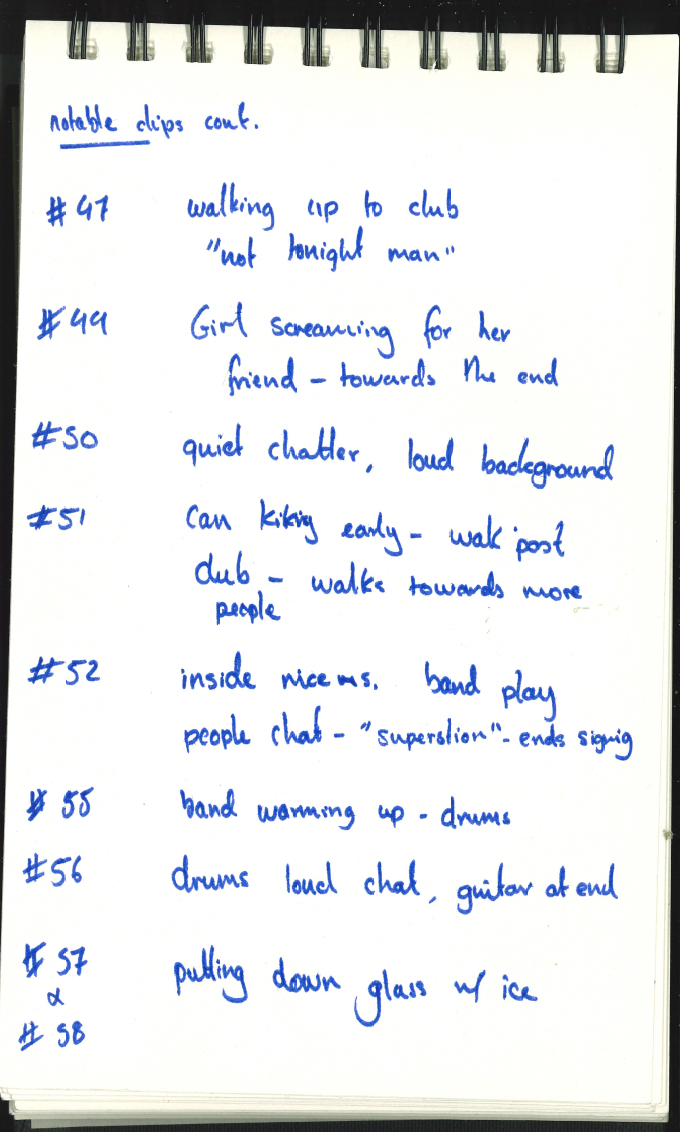 notable clips cont.
#47 walking up to club
"not tonight man"
#49 Girl screaming for her
friend – towards the end
#50 quiet chatter, loud background
#51 Can kikig early – walk post
club – walks towards more
people
#52 inside nice ms. band play
people chat – "superstion" - ends signig
#55 band warming up - drums
#56 drums loud chat, guitar at end
#57 putting down glass w/ ice
&
#58